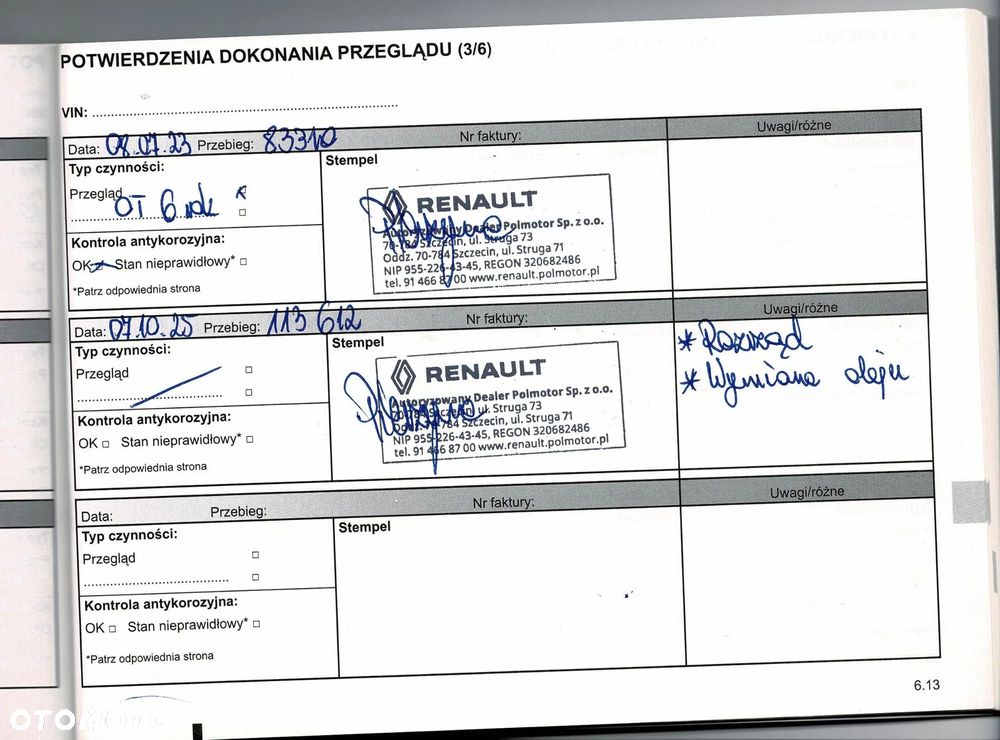 POTWIERDZENIA DOKONANIA PRZEGLĄDU (3/6)
VIN: ..........
Data: 08.07.23 Przebieg: 83310 Nr faktury: Uwagi/różne
Typ czynności: Stempel
Przegląd
OT 6 rok
RENAULT
Autoryzowany Dealer Polmotor Sp. z o.o.
70-784 Szczecin, ul. Struga 73
Oddz. 70-784 Szczecin, ul. Struga 71
NIP 955-226-43-45, REGON 320682486
tel. 91 466 87 00 www.renault.polmotor.pl
Kontrola antykorozyjna:
OK Stan nieprawidłowy*
*Patrz odpowiednia strona
Data: 07.10.25 Przebieg: 113 612 Nr faktury: Uwagi/różne
Typ czynności: Stempel
Przegląd
RENAULT
Autoryzowany Dealer Polmotor Sp. z o.o.
70-784 Szczecin, ul. Struga 73
Oddz. 70-784 Szczecin, ul. Struga 71
NIP 955-226-43-45, REGON 320682486
tel. 91 466 87 00 www.renault.polmotor.pl
* Rozrząd
* Wymiana oleju
Kontrola antykorozyjna:
OK □ Stan nieprawidłowy* □
*Patrz odpowiednia strona
Data: Przebieg: Nr faktury: Uwagi/różne
Typ czynności: Stempel
Przegląd □
Kontrola antykorozyjna:
OK □ Stan nieprawidłowy* □
*Patrz odpowiednia strona
6.13
OTOMOTO